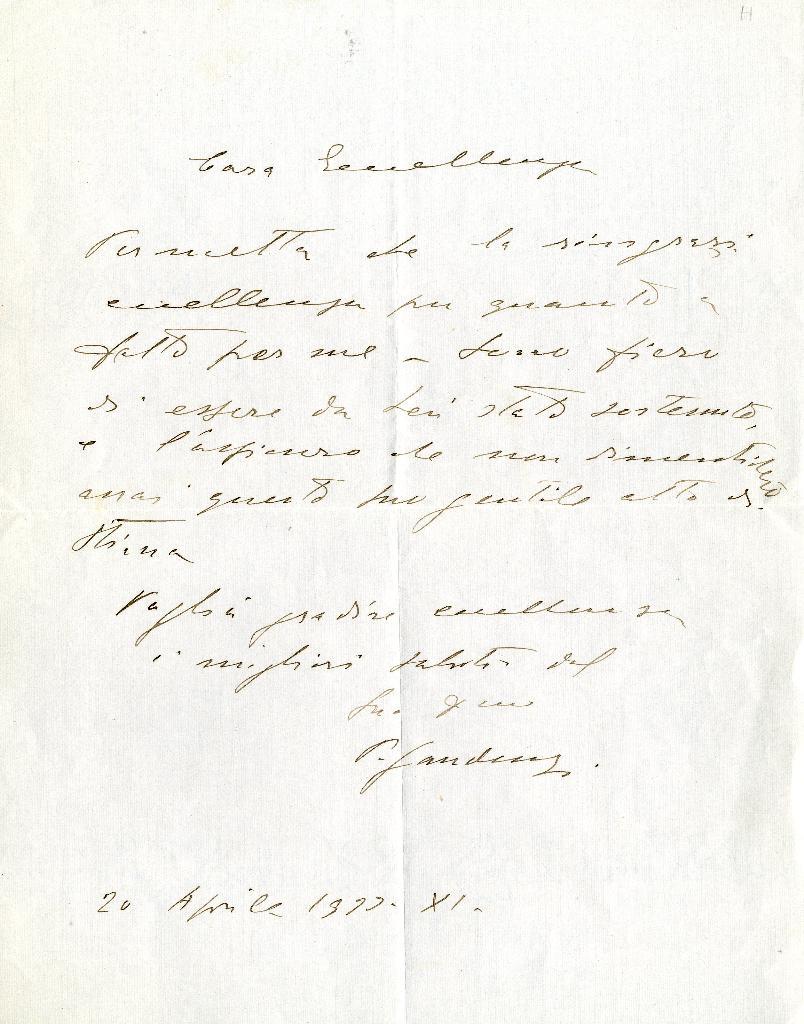 H
Cara Eccellenza
Permetta che la ringrazi
eccellenza per quanto a
fatto per me - Sono fiero
di essere da Lei stato sostenuto,
e l'assicuro che non dimenticherò
mai questo suo gentile atto di
stima
Voglia gradire eccellenza
i migliori saluti dal
Suo
P. Gaudenzi.
20 Aprile 1933. XI.